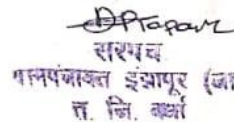 सरपंच
ग्रामपंचायत इंझापूर (जा
त. जि. वर्धा